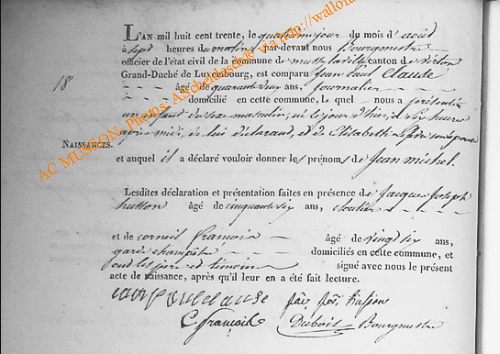 L'AN mil huit cent trente, le quatrième jour du mois d'août
à sept heures du matin par-devant nous Bourgmestre
officier de l'état civil de la commune de canton de Virton
Grand-Duché de Luxembourg, est comparu Jean Paul Claude
18
âgé de quarante ans, journalier
domicilié en cette commune, lequel nous a présenté
un enfant du sexe masculin, né le jour d'hier, à six heures
après midi, de lui déclarant, et de Elisabeth
NAISSANCES.
et auquel il a déclaré vouloir donner les prénoms de Jean michel.
Lesdites déclaration et présentation faites en présence de Jacque Joseph
husson âgé de cinquante six ans, cloutier
et de corneil françois âgé de vingt six ans,
garde champêtre domiciliés en cette commune, et
ont les père et témoins signé avec nous le présent
acte de naissance, après qu'il leur en a été fait lecture.
C. françois Dubois Bourgmestre
AC MUSSON, Photos